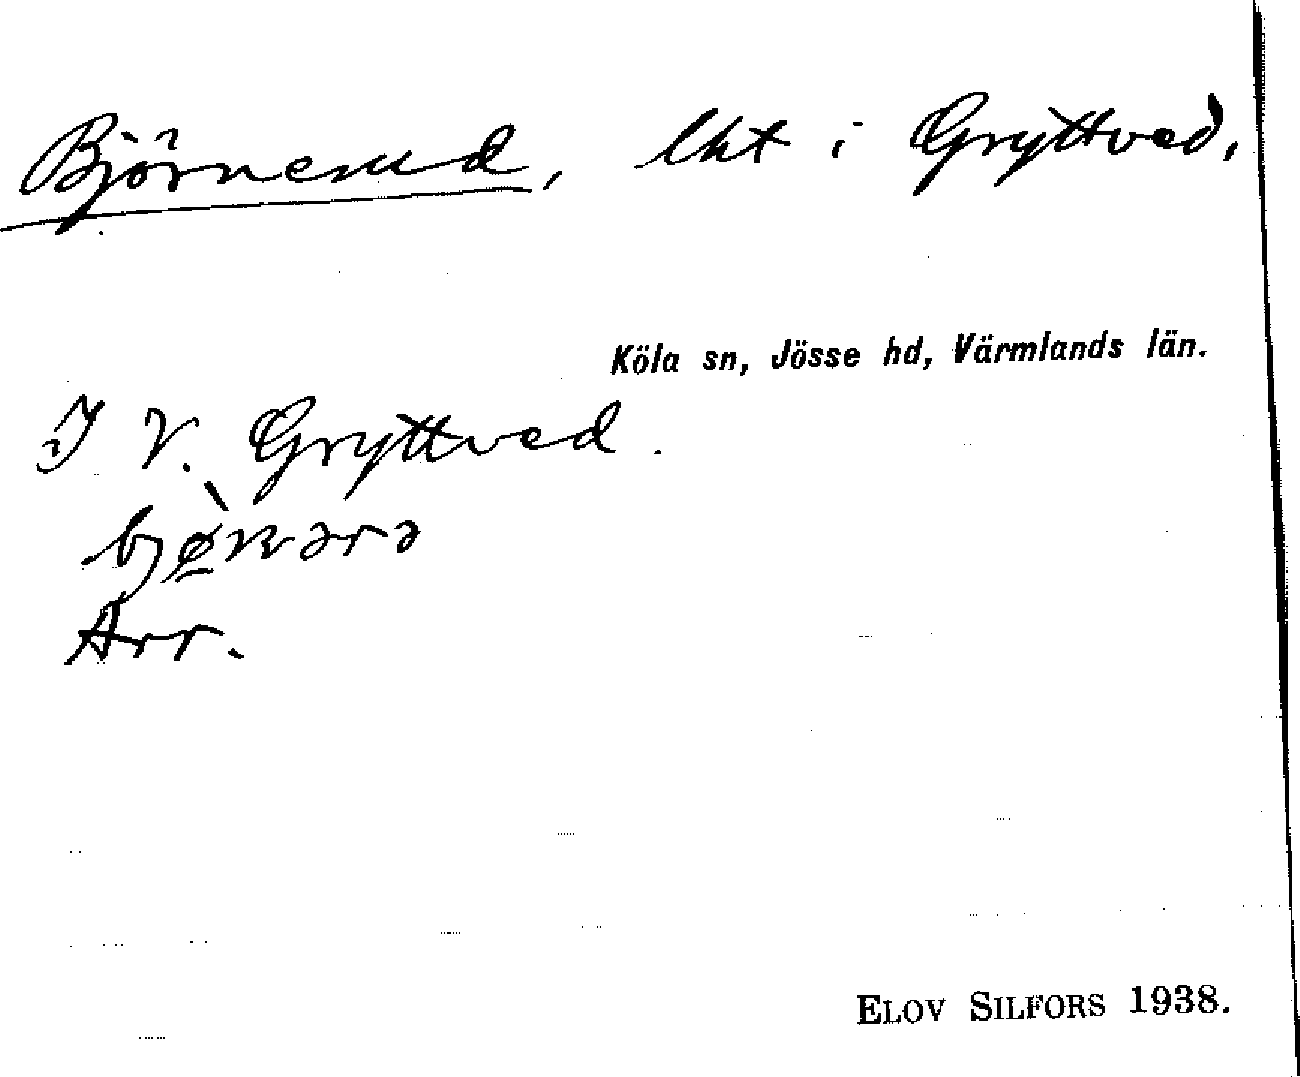 Björnerud, lht i Gryttved,
Köla sn, Jösse hd, Värmlands län.
I V. Gryttved.
Arr.
ELOV SILFORS 1938.